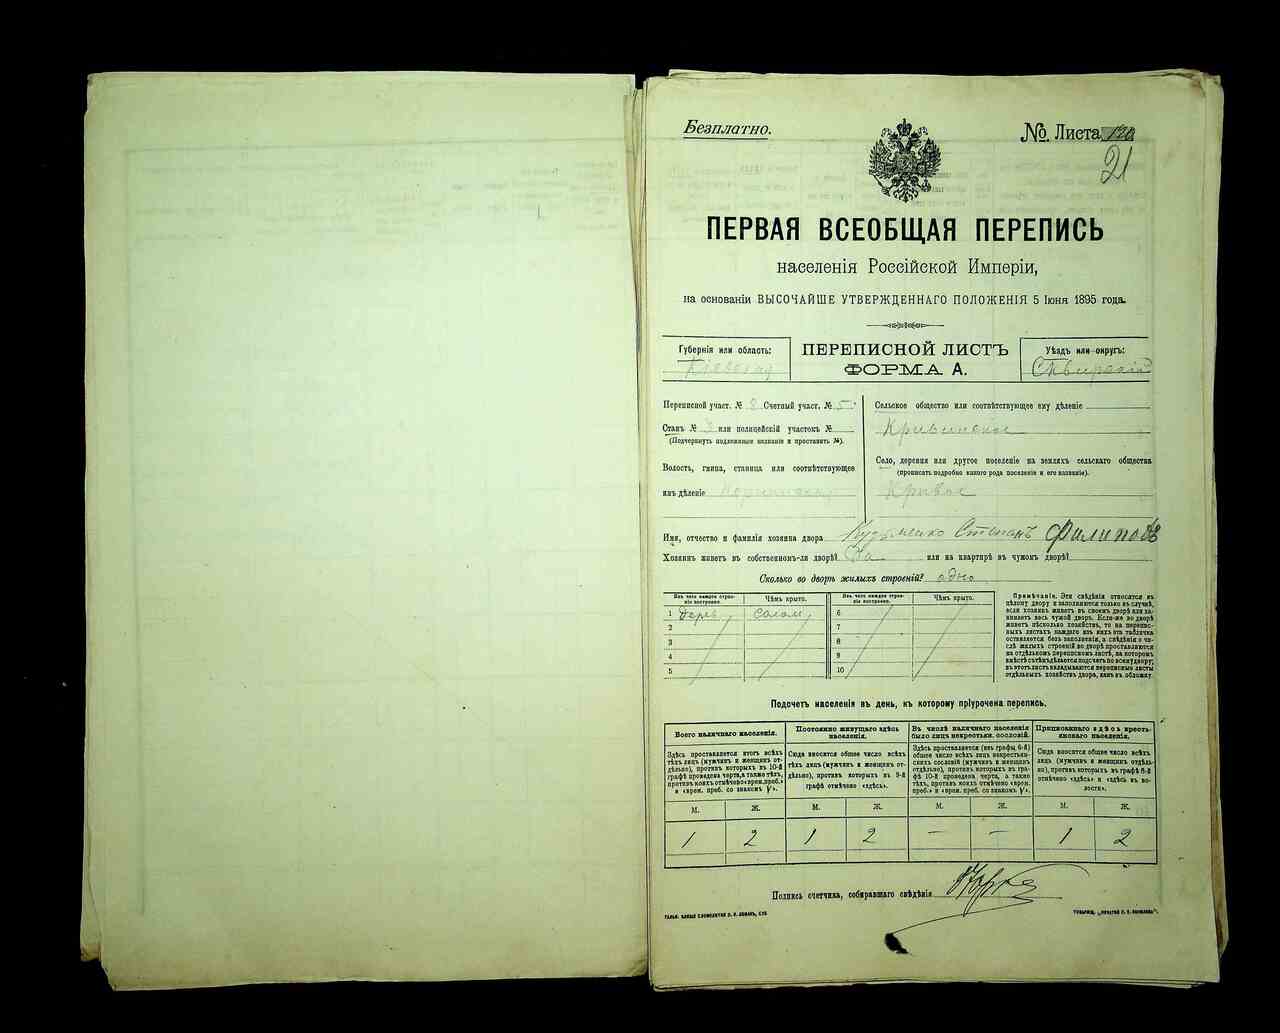 Безплатно.
№ Листа 120
21
ПЕРВАЯ ВСЕОБЩАЯ ПЕРЕПИСЬ
населенія Россійской Имперіи,
на основаніи ВЫСОЧАЙШЕ УТВЕРЖДЕННАГО ПОЛОЖЕНІЯ 5 Іюня 1895 года.
Губернія или область:
Кіевская
ПЕРЕПИСНОЙ ЛИСТЪ
ФОРМА А.
Уѣздъ или округъ:
Сквирскій
Переписной участ. № 8 Счетный участ. № 5
Станъ № 3 или полицейскій участокъ №
(Подчеркнуть подлежащее названіе и проставить №).
Волость, гмина, станица или соотвѣтствующее
имъ дѣленіе
Сельское общество или соотвѣтствующее ему дѣленіе
Кривянское
Село, деревня или другое поселеніе на земляхъ сельскаго общества
(прописать подробно какого рода поселеніе и его названіе).
Кривое
Имя, отчество и фамилія хозяина двора Кузьменко Степанъ Филиповъ
Хозяинъ живетъ въ собственномъ-ли дворѣ? Да или на квартирѣ въ чужомъ дворѣ?
Сколько во дворѣ жилыхъ строеній? одно
Изъ чего каждое строеніе построено.
Чѣмъ крыто.
Изъ чего каждое строеніе построено.
Чѣмъ крыто.
1 дерев солом 6
2 7
3 8
4 9
5 10
Примѣчаніе. Эти свѣдѣнія относятся къ
цѣлому двору и заполняются только въ случаѣ,
если хозяинъ живетъ въ своемъ дворѣ или занимаетъ
весь чужой дворъ. Если-же во дворѣ
живетъ нѣсколько хозяйствъ, то на переписныхъ
листахъ каждаго изъ нихъ эта табличка
оставляется безъ заполненія, а свѣдѣнія о числѣ
жилыхъ строеній во дворѣ проставляются
на отдѣльномъ переписномъ листѣ, на которомъ
вмѣстѣ съ тѣмъ дѣлается подсчетъ по всему двору;
въ этотъ листъ вкладываются переписные листы
отдѣльныхъ хозяйствъ двора, какъ въ обложку.
Подсчетъ населенія въ день, къ которому пріурочена перепись.
Всего наличнаго населенія.
Здѣсь проставляется итогъ всѣхъ
тѣхъ лицъ (мужчинъ и женщинъ отдѣльно),
противъ которыхъ въ 10-й
графѣ проведена черта, а также тѣхъ,
противъ коихъ отмѣчено «врем. преб.»
и «врем. преб. со знакомъ V».
Постоянно живущаго здѣсь
населенія.
Сюда вносится общее число всѣхъ
тѣхъ лицъ (мужчинъ и женщинъ отдѣльно),
противъ которыхъ въ 9-й
графѣ отмѣчено «здѣсь».
Въ числѣ наличнаго населенія
было лицъ некрестьян. сословій.
Здѣсь проставляется (изъ графы 6-й)
общее число всѣхъ лицъ некрестьянскихъ
сословій (мужчинъ и женщинъ
отдѣльно), противъ которыхъ въ графѣ
10-й проведена черта, а также
тѣхъ, противъ коихъ отмѣчено «врем.
преб.» и «врем. преб. со знакомъ V».
Приписаннаго здѣсь крестьянскаго
населенія.
Сюда вносится общее число всѣхъ
лицъ (мужчинъ и женщинъ отдѣльно),
противъ которыхъ въ графѣ 8-й
отмѣчено «здѣсь» и «здѣсь въ волости».
М. Ж. М. Ж. М. Ж. М. Ж.
1 2 1 2 — — 1 2
Подпись счетчика, собиравшаго свѣдѣнія